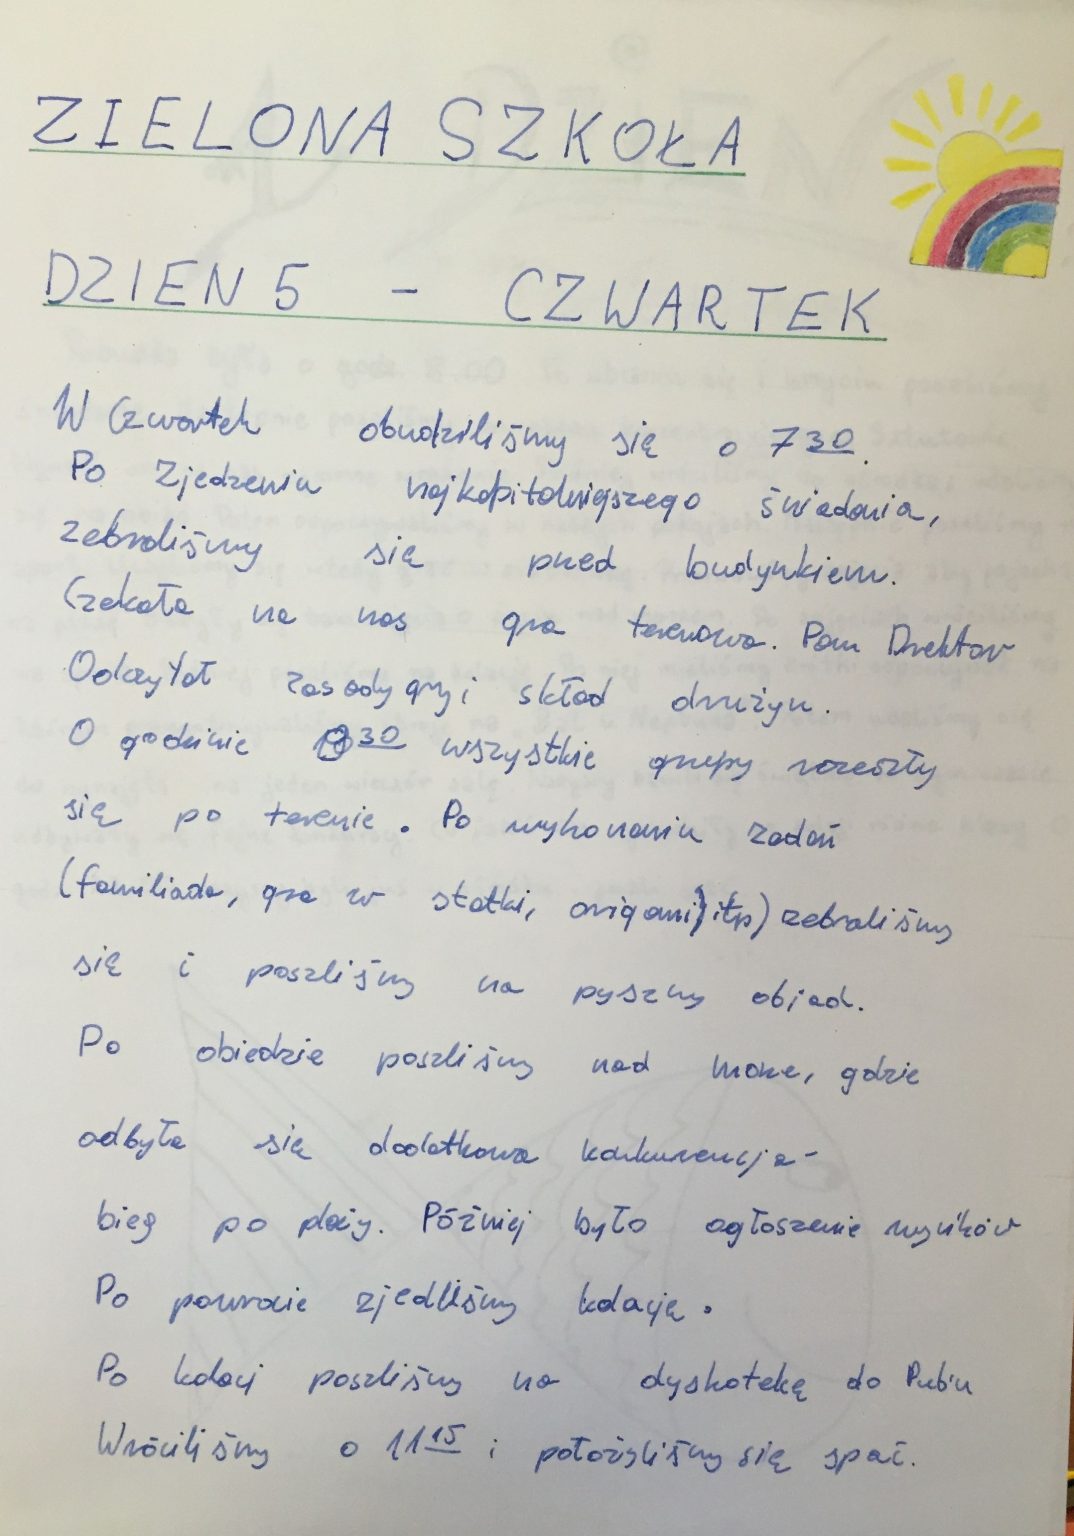 ZIELONA SZKOŁA
DZIEN 5 - CZWARTEK
W Czwartek obudziliśmy się o 7 30.
Po Zjedzeniu najkapitalniejszego świadania,
zebraliśmy się przed budynkiem.
Czekała na nas gra terenowa. Pan Drektor
Odczytał zasady gry i skład drużyn.
O godzinie 30 wszystkie grupy rozeszły
się po terenie. Po wykonaniu zadań
(familiada, gra w statki, origami) itp) zebraliśmy
się i poszliśmy na pyszny obiad.
Po obiedzie poszliśmy nad morze, gdzie
odbyła się dodatkowa konkurencja-
bieg po plaży. Później było ogłoszenie wyników
Po powrocie zjedliśmy kolację.
Po kolacj poszliśmy na dyskotekę do Pub'u
Wróciliśmy o 11 15 i położyliśmy się spać.